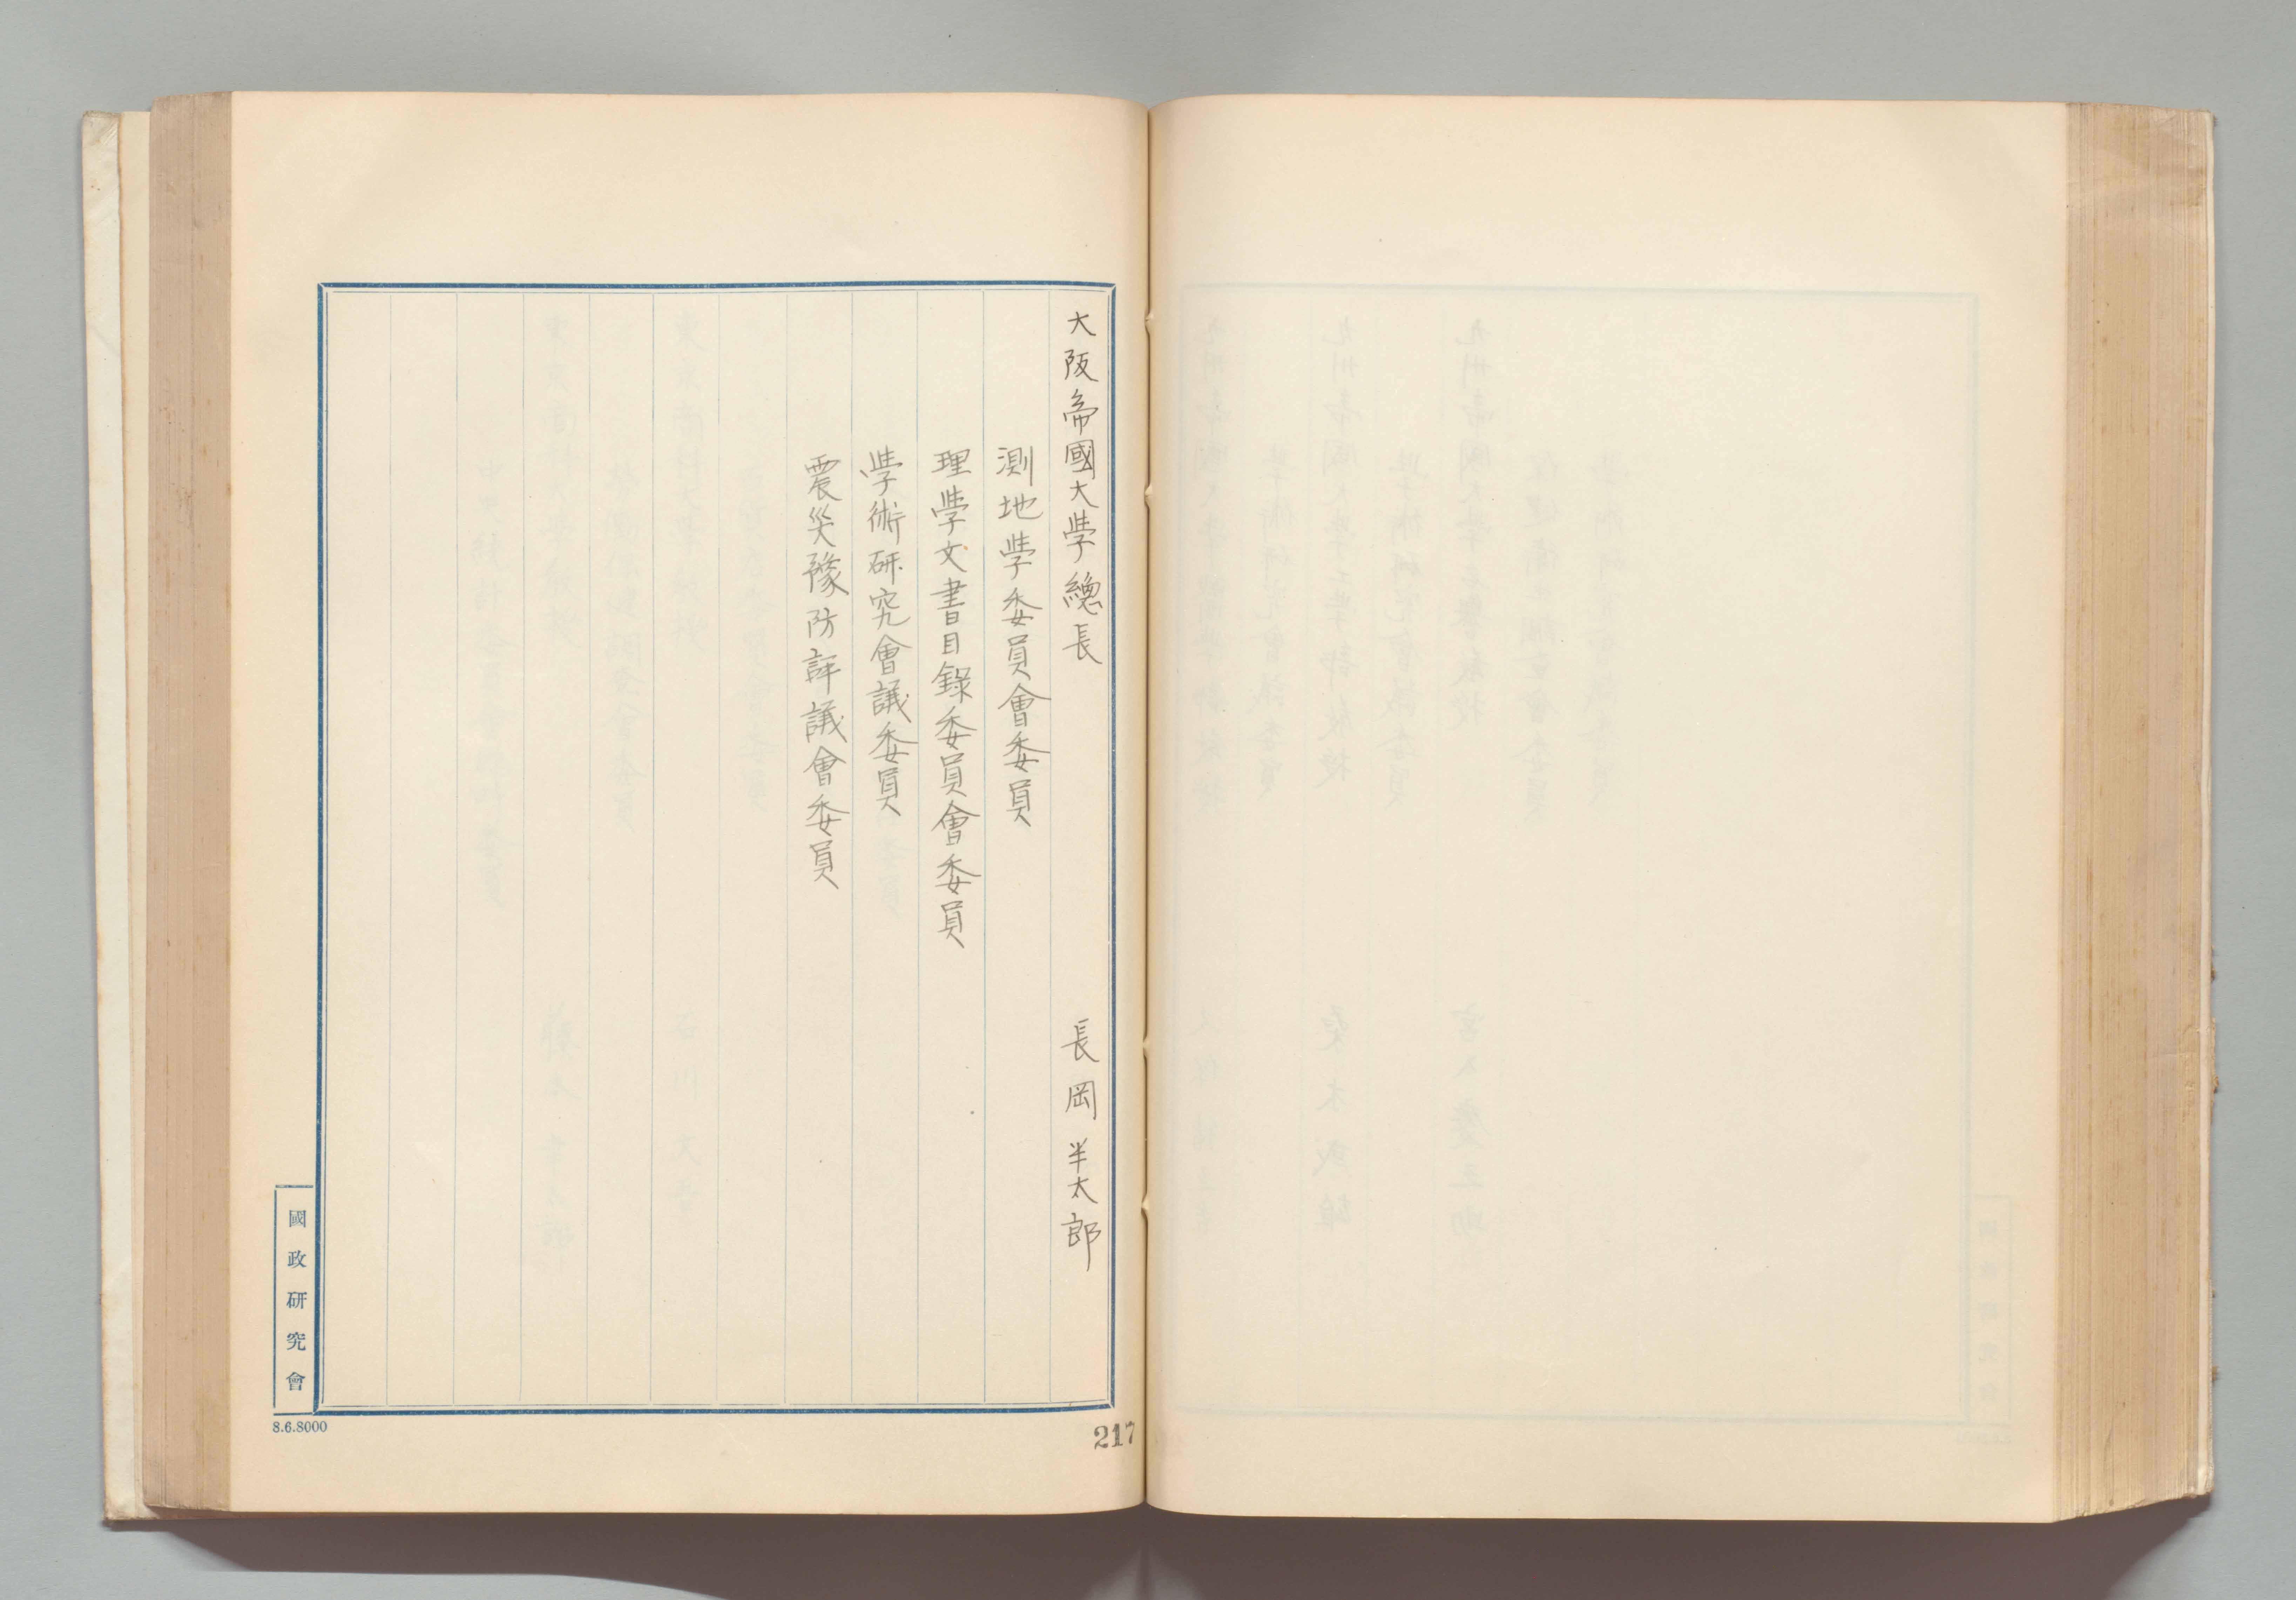 大阪帝國大学總長 長岡半太郎
測地学委員會委員
理学文書目錄委員會委員
学術研究會議委員
震災豫防評議會委員
國政研究會
8.6.8000
217